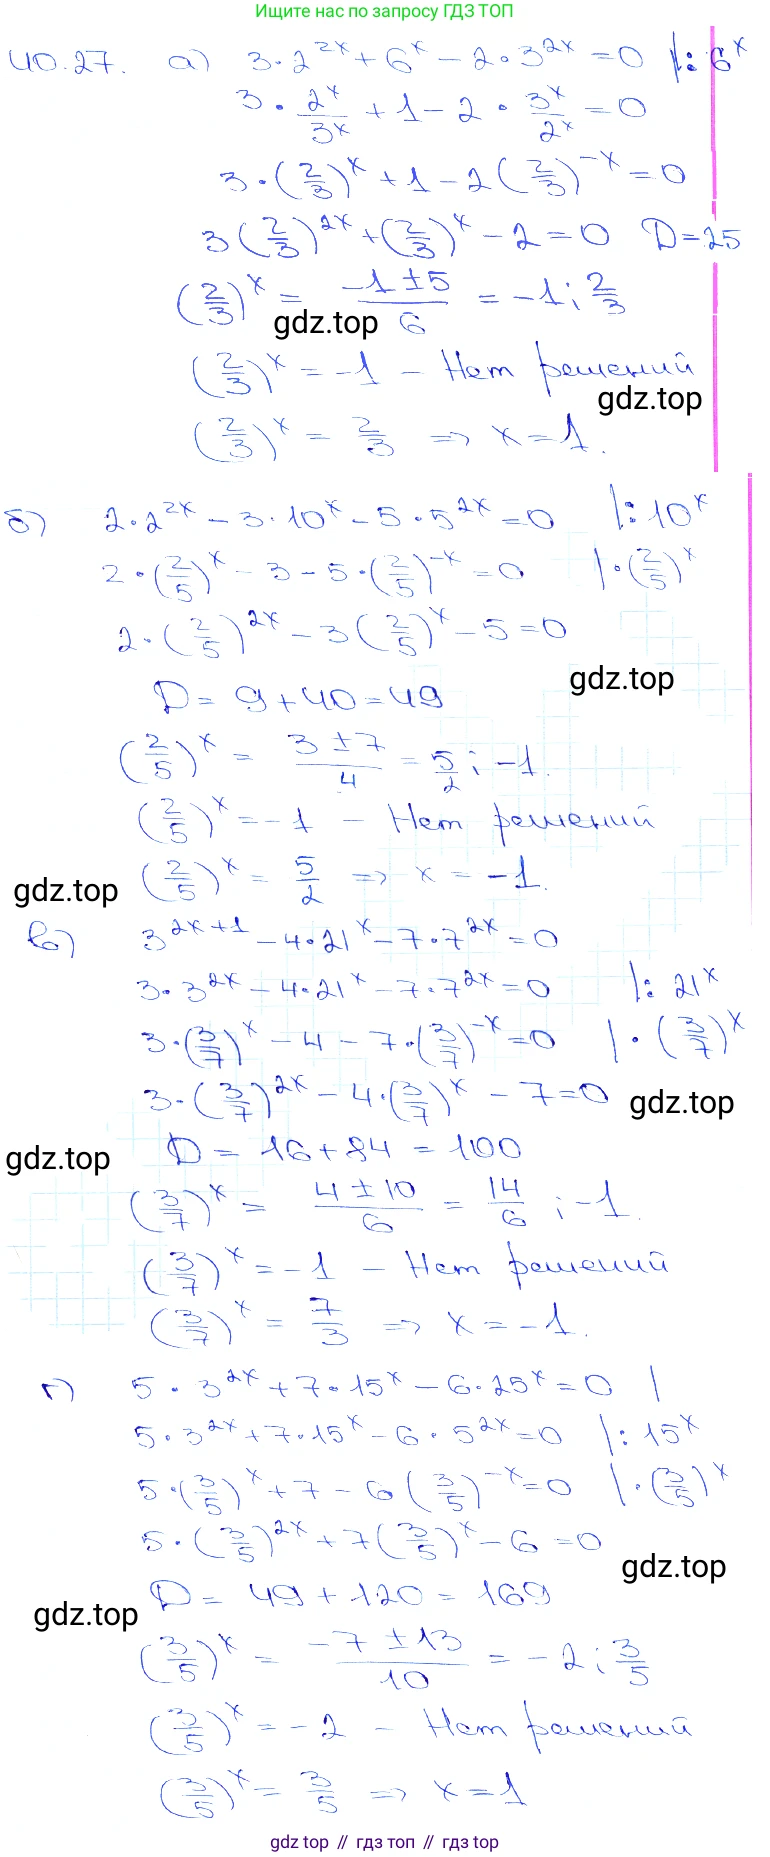 Ищите нас по запросу ГДЗ ТОП
40.27. а) 3·2^{2x} + 6^x − 2·3^{2x} = 0 |: 6^x
3 · 2^x/3^x + 1 − 2 · 3^x/2^x = 0
3·(2/3)^x + 1 − 2(2/3)^{−x} = 0
3(2/3)^{2x} + (2/3)^x − 2 = 0 D = 25
(2/3)^x = (−1 ± 5)/6 = −1; 2/3
gdz.top
(2/3)^x = −1 − Нет решений
gdz.top
(2/3)^x = 2/3 => x = 1.
б) 2·2^{2x} − 3·10^x − 5·5^{2x} = 0 |: 10^x
2·(2/5)^x − 3 − 5·(2/5)^{−x} = 0 |·(2/5)^x
2·(2/5)^{2x} − 3(2/5)^x − 5 = 0
gdz.top
D = 9 + 40 = 49
(2/5)^x = (3 ± 7)/4 = 5/2; −1.
(2/5)^x = −1 − Нет решений
gdz.top
(2/5)^x = 5/2 => x = −1.
в) 3^{2x+1} − 4·21^x − 7·7^{2x} = 0
3·3^{2x} − 4·21^x − 7·7^{2x} = 0 |: 21^x
3·(3/7)^x − 4 − 7·(3/7)^{−x} = 0 |·(3/7)^x
3·(3/7)^{2x} − 4·(3/7)^x − 7 = 0
gdz.top
D = 16 + 84 = 100
gdz.top
(3/7)^x = (4 ± 10)/6 = 14/6; −1.
(3/7)^x = −1 − Нет решений
(3/7)^x = 7/3 => x = −1.
г) 5·3^{2x} + 7·15^x − 6·25^x = 0 |
5·3^{2x} + 7·15^x − 6·5^{2x} = 0 |: 15^x
5·(3/5)^x + 7 − 6(3/5)^{−x} = 0 |·(3/5)^x
5·(3/5)^{2x} + 7(3/5)^x − 6 = 0
gdz.top
D = 49 + 120 = 169
gdz.top
(3/5)^x = (−7 ± 13)/10 = −2; 3/5
(3/5)^x = −2 − Нет решений
(3/5)^x = 3/5 => x = 1
gdz top // гдз топ // гдз top